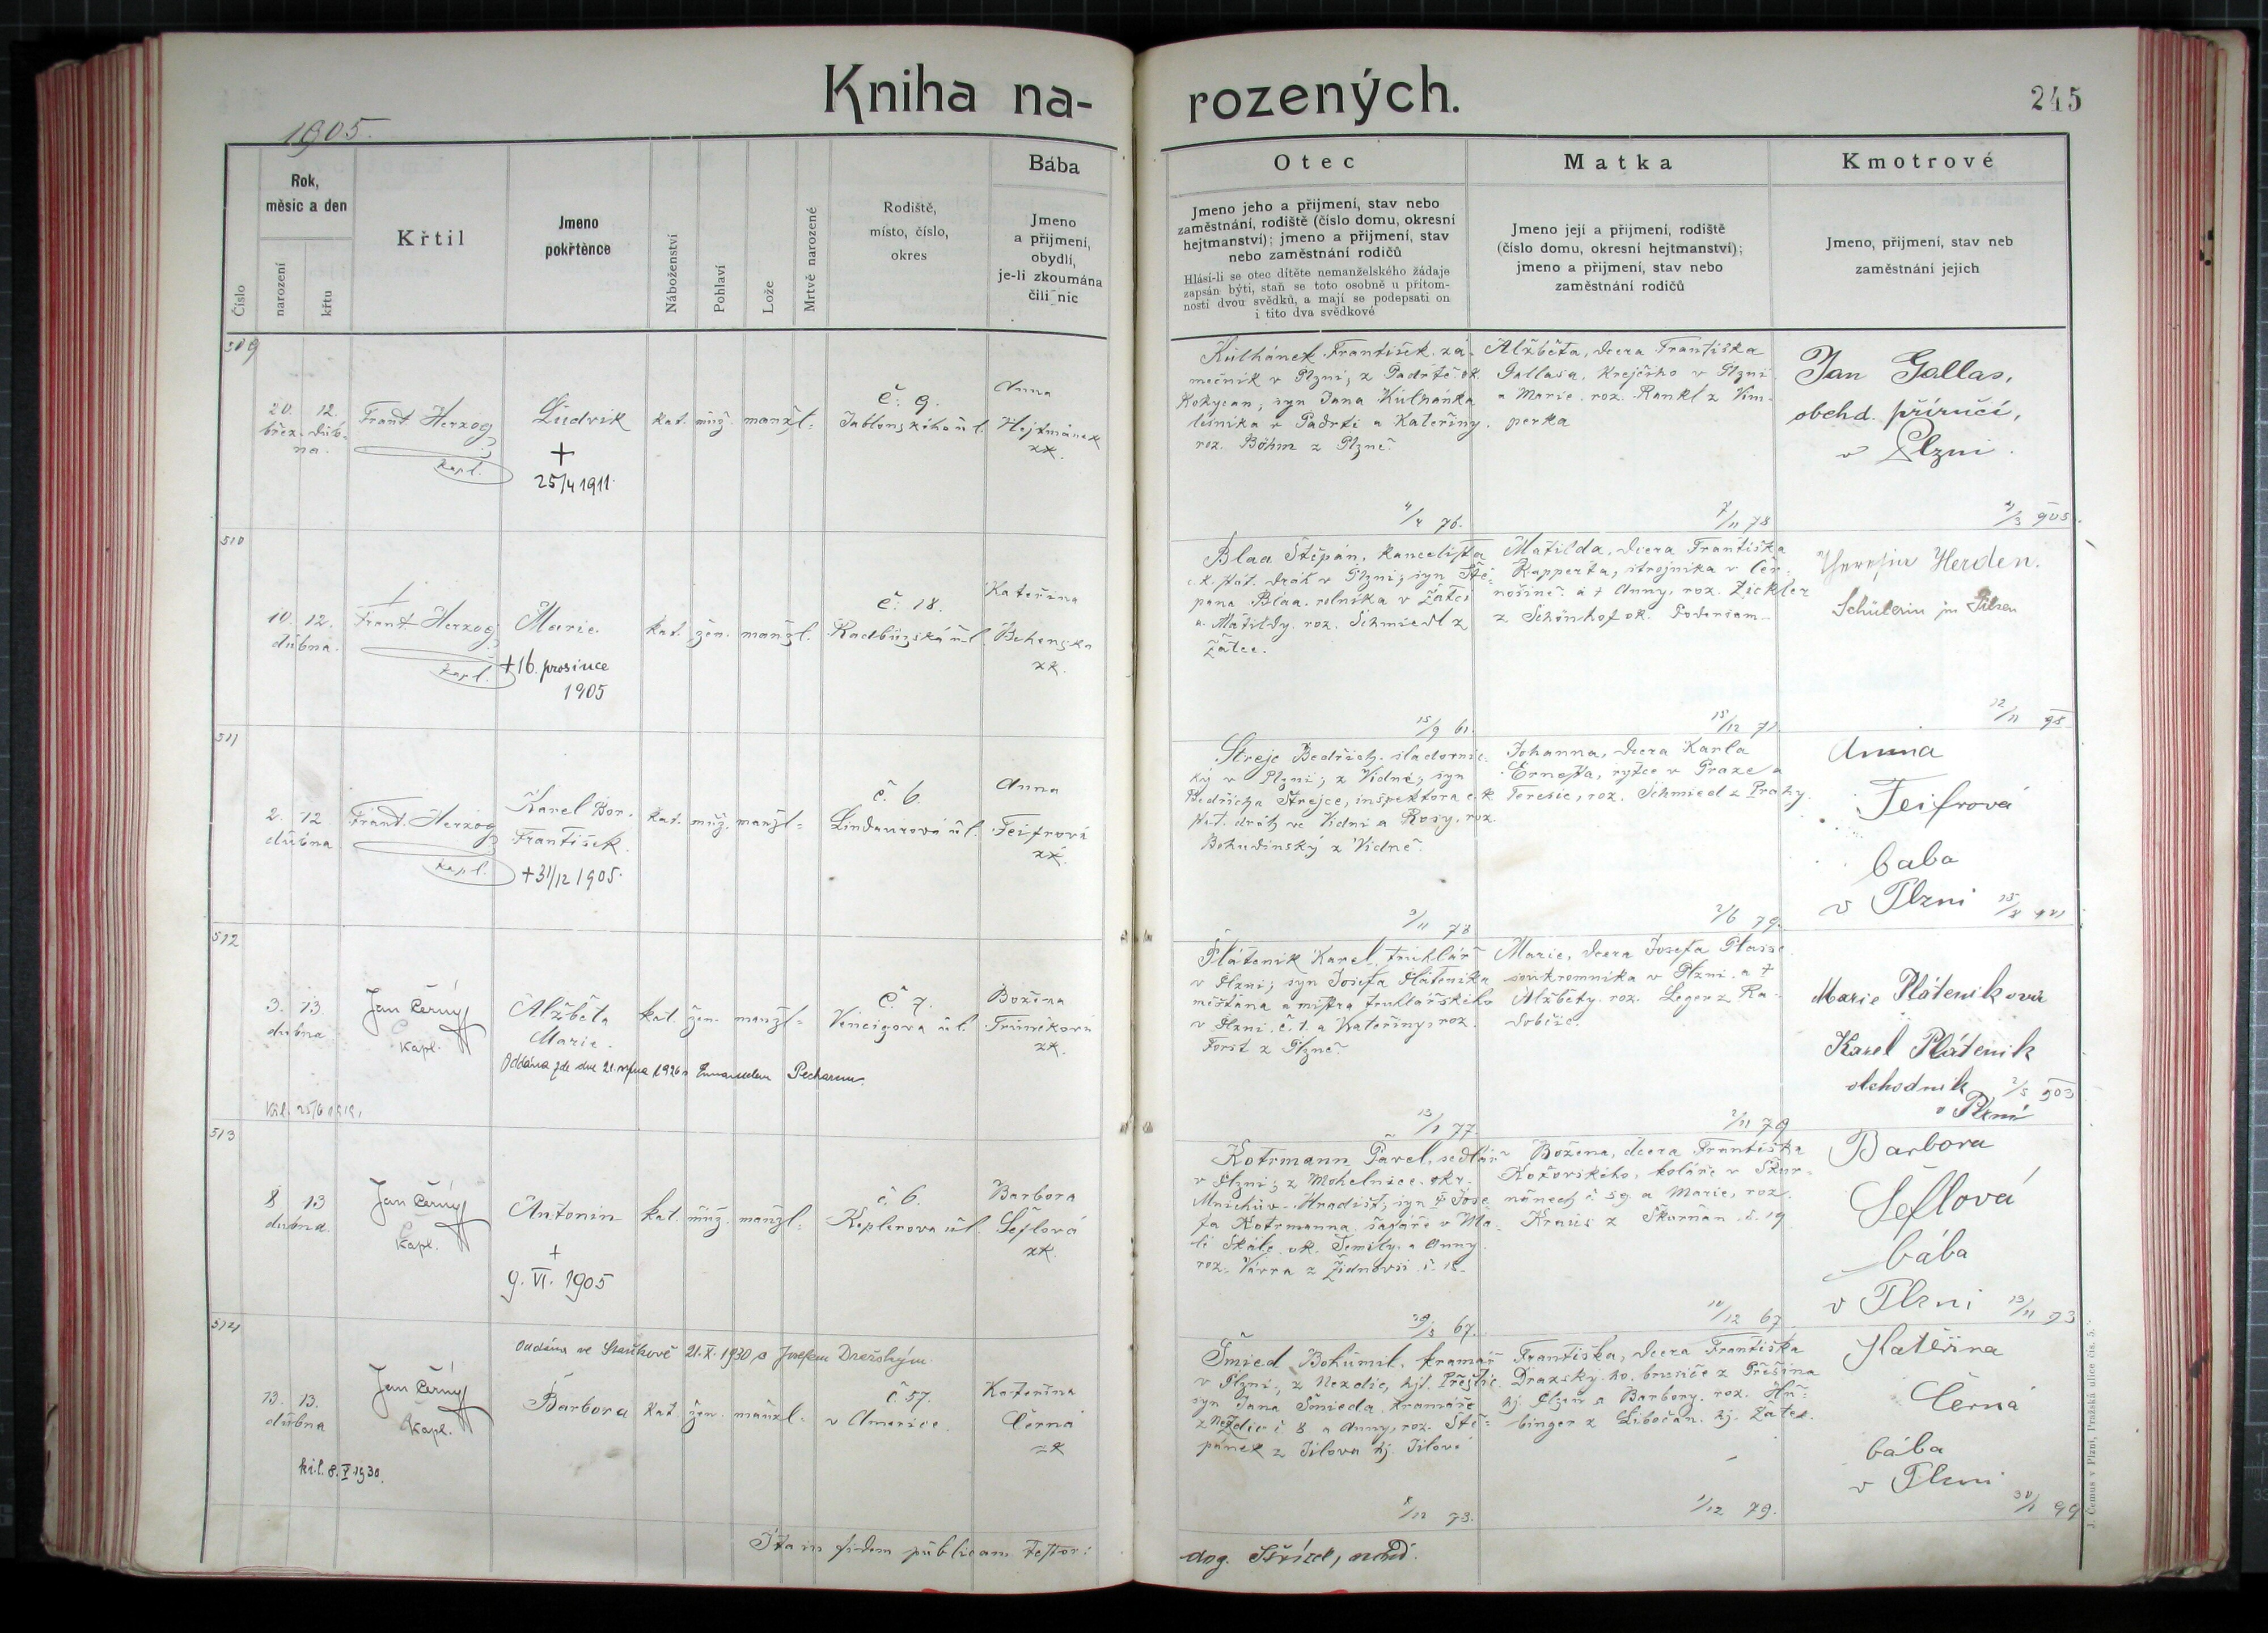 Kniha na-
rozených.
245
1905.
Číslo
Rok,
měsíc a den
narození
křtu
Křtil
Jmeno
pokřtěnce
Náboženství
Pohlaví
Lože
Mrtvě narozené
Rodiště,
místo, číslo,
okres
Bába
Jmeno
a přijmení,
obydlí,
je-li zkoumána
čili nic
Otec
Jmeno jeho a přijmení, stav nebo
zaměstnání, rodiště (číslo domu, okresní
hejtmanství); jmeno a přijmení, stav
nebo zaměstnání rodičů
Hlásí-li se otec dítěte nemanželského žádaje
zapsán býti, staň se toto osobně u přítom-
nosti dvou svědků, a mají se podepsati on
i tito dva svědkové
Matka
Jmeno její a přijmení, rodiště
(číslo domu, okresní hejtmanství);
jmeno a přijmení, stav nebo
zaměstnání rodičů
Kmotrové
Jmeno, přijmení, stav neb
zaměstnání jejich
509
20. 12.
břez. dub-
na.
Frant. Herzog
kapl.
Ludvík
+
25/4 1911.
kat. muž. manžl.
č. 9.
Jablonského ul.
Anna
Hejtmánek
zk.
Kulhánek František, zá-
mečník v Plzni, z Padrtě ok.
Rokycan, syn Jana Kulhánka
lesníka v Padrti a Kateřiny,
roz. Böhm z Plzně.
4/4 76.
Alžběta, dcera Františka
Gallasa, krejčího v Plzni
a Marie, roz. Rankl z Vim-
perka
7/11 78
Jan Gallas,
obchd. příručí,
v Plzni.
2/3 905.
510
10. 12.
dubna.
Frant. Herzog
kapl.
Marie.
+ 16. prosince
1905
kat. žen. manžl.
č. 18.
Radbuzská ul.
Kateřina
zk.
Blaa Štěpán, kancelista
c. k. stát. drah v Plzni, syn Ště-
pána Blaa, rolníka v Žatci
a Matildy, roz. Schmiedl z
Žatce.
15/9 61.
Matilda, dcera Františka
Rapperta, strojníka v Čer-
nošíně a + Anny, roz. Zickler
z Schönhof ok. Podersam
15/12 71.
Theresia Herden.
Schülerin in Pilsen
12/11 98.
511
2. 12.
dubna
Frant. Herzog
kapl.
Karel Bor.
František.
+ 31/12 1905.
kat. muž. manžl.
č. 6.
Lindaurova ul.
Anna
Feifrová
zk.
Strejc Bedřich, sladovnic-
ký v Plzni, z Vídně, syn
Bedřicha Strejce, inspektora c. k.
stát. dráh ve Vídni a Rosy, roz.
Bohudinský z Vídně.
3/11 78
Johanna, dcera Karla
Ernesta, rytce v Praze a
Terezie, roz. Schmied z Prahy.
2/6 79.
Anna
Feifrová
baba
v Plzni
512
3. 13.
dubna
Jan Černý
kapl.
Alžběta
Marie.
Oddána zde dne 21. srpna 1926 s Emanuelem Pecharem.
kat. žen. manžl.
č. 7.
Vincigova ul.
Božena
Truněková
zk.
Pláteník Karel, truhlář
v Plzni, syn Josefa Pláteníka
měšťana a mistra truhlářského
v Plzni č. 1. a Kateřiny, roz.
Forst z Plzně.
13/1 77.
Marie, dcera Josefa
soukromníka v Plzni a +
Alžběty, roz. Leger z Ra-
dobčic.
2/11 79
Marie Pláteníková
Karel Pláteník
obchodník 2/5 903
v Plzni
513
8 13
dubna.
Jan Černý
kapl.
Antonín
+
9. VI. 1905
kat. muž. manžl.
č. 6.
Keplerova ul.
Barbora
Šeflová
zk.
Kotrmann Pavel, sedlář
v Plzni, z Mohelnice okr.
Mnichův-Hradišt, syn + Jose-
fa Kotrmanna, šafáře v Ma-
lé Skále ok. Semily a Anny
roz. Vávra z č. 18.
29/3 67.
Božena, dcera Františka
Kožovského, koláře v Skur-
ňanech č. 59. a Marie, roz.
Kraus z Skurňan č. 19
10/12 67
Barbora
Šeflová
bába
v Plzni 13/11 93
514
13. 13.
dubna
Jan Černý
kapl.
k.l. 8. X. 1930.
Oddána ve Staňkově 21. X. 1930 s Josefem Dražským.
Barbora
kat. žen. manžl.
č 57.
v Americe.
Kateřina
Černá
zk
Šmied Bohumil, kramář
v Plzni, z Nezdic, hjt. Přeštic
syn Jana Šmieda, kramáře
z Nezdic č. 8 a Anny, roz. Ště-
pánek z Jílova hj. Jílové
5/12 73.
Františka, dcera Františka
Dražský-ho, brusiče z Přešina
hj. Plzeň a Barbory, roz. Hü-
binger z Libočan, hj. Žatec.
1/12 79.
Kateřina
Černá
bába
v Plzni
30/1 99
Ita in fidem publicam testor:
J. Čemus v Plzni, Pražská ulice čís. 5.